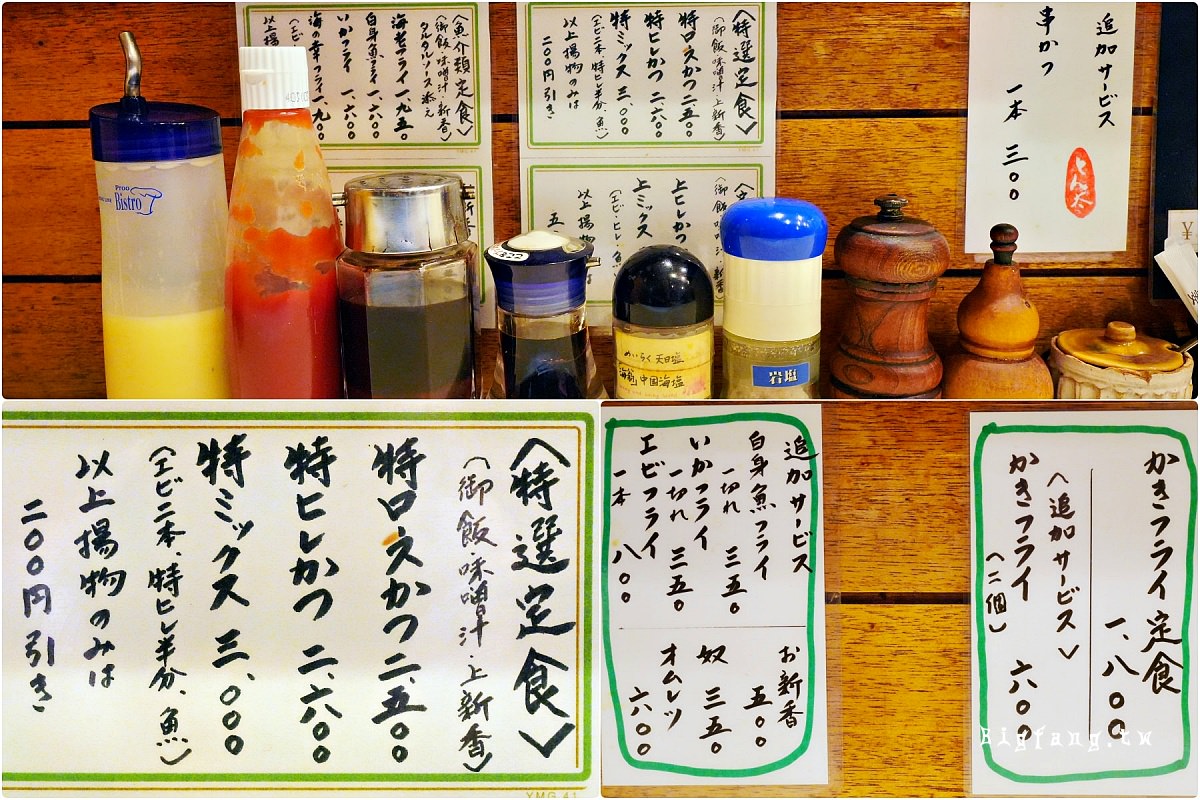 〈魚介類定食〉
(御飯・味噌汁・新香)
タルタルソース添え
海老フライ 一、九五〇
白身魚フライ 一、六〇〇
いかフライ 一、六〇〇
海の幸フライ 一、九〇〇
〈特選定食〉
(御飯・味噌汁・上新香)
特ロースかつ 二、五〇〇
特ヒレかつ 二、六〇〇
特ミックス 三、〇〇〇
(エビ二本、特ヒレ半分、魚)
以上揚物のみは
二〇〇円引き
上ヒレかつ
上ミックス
以上揚物のみは
追加サービス
串かつ
一本 三〇〇
とん太
Proo
Bistro
めいらく 天日塩
中国海塩
岩塩
YMG 41
〈特選定食〉
(御飯・味噌汁・上新香)
特ロースかつ 二、五〇〇
特ヒレかつ 二、六〇〇
特ミックス 三、〇〇〇
(エビ二本、特ヒレ半分、魚)
以上揚物のみは
二〇〇円引き
YMG 41
追加サービス
白身魚フライ
一切れ 三五〇
いかフライ
一切れ 三五〇
エビフライ
一本 八〇〇
お新香
五〇〇
奴 三五〇
オムレツ
六〇〇
かきフライ定食
一、八〇〇
〈追加サービス〉
かきフライ
(二個) 六〇〇
Bigfang.tw